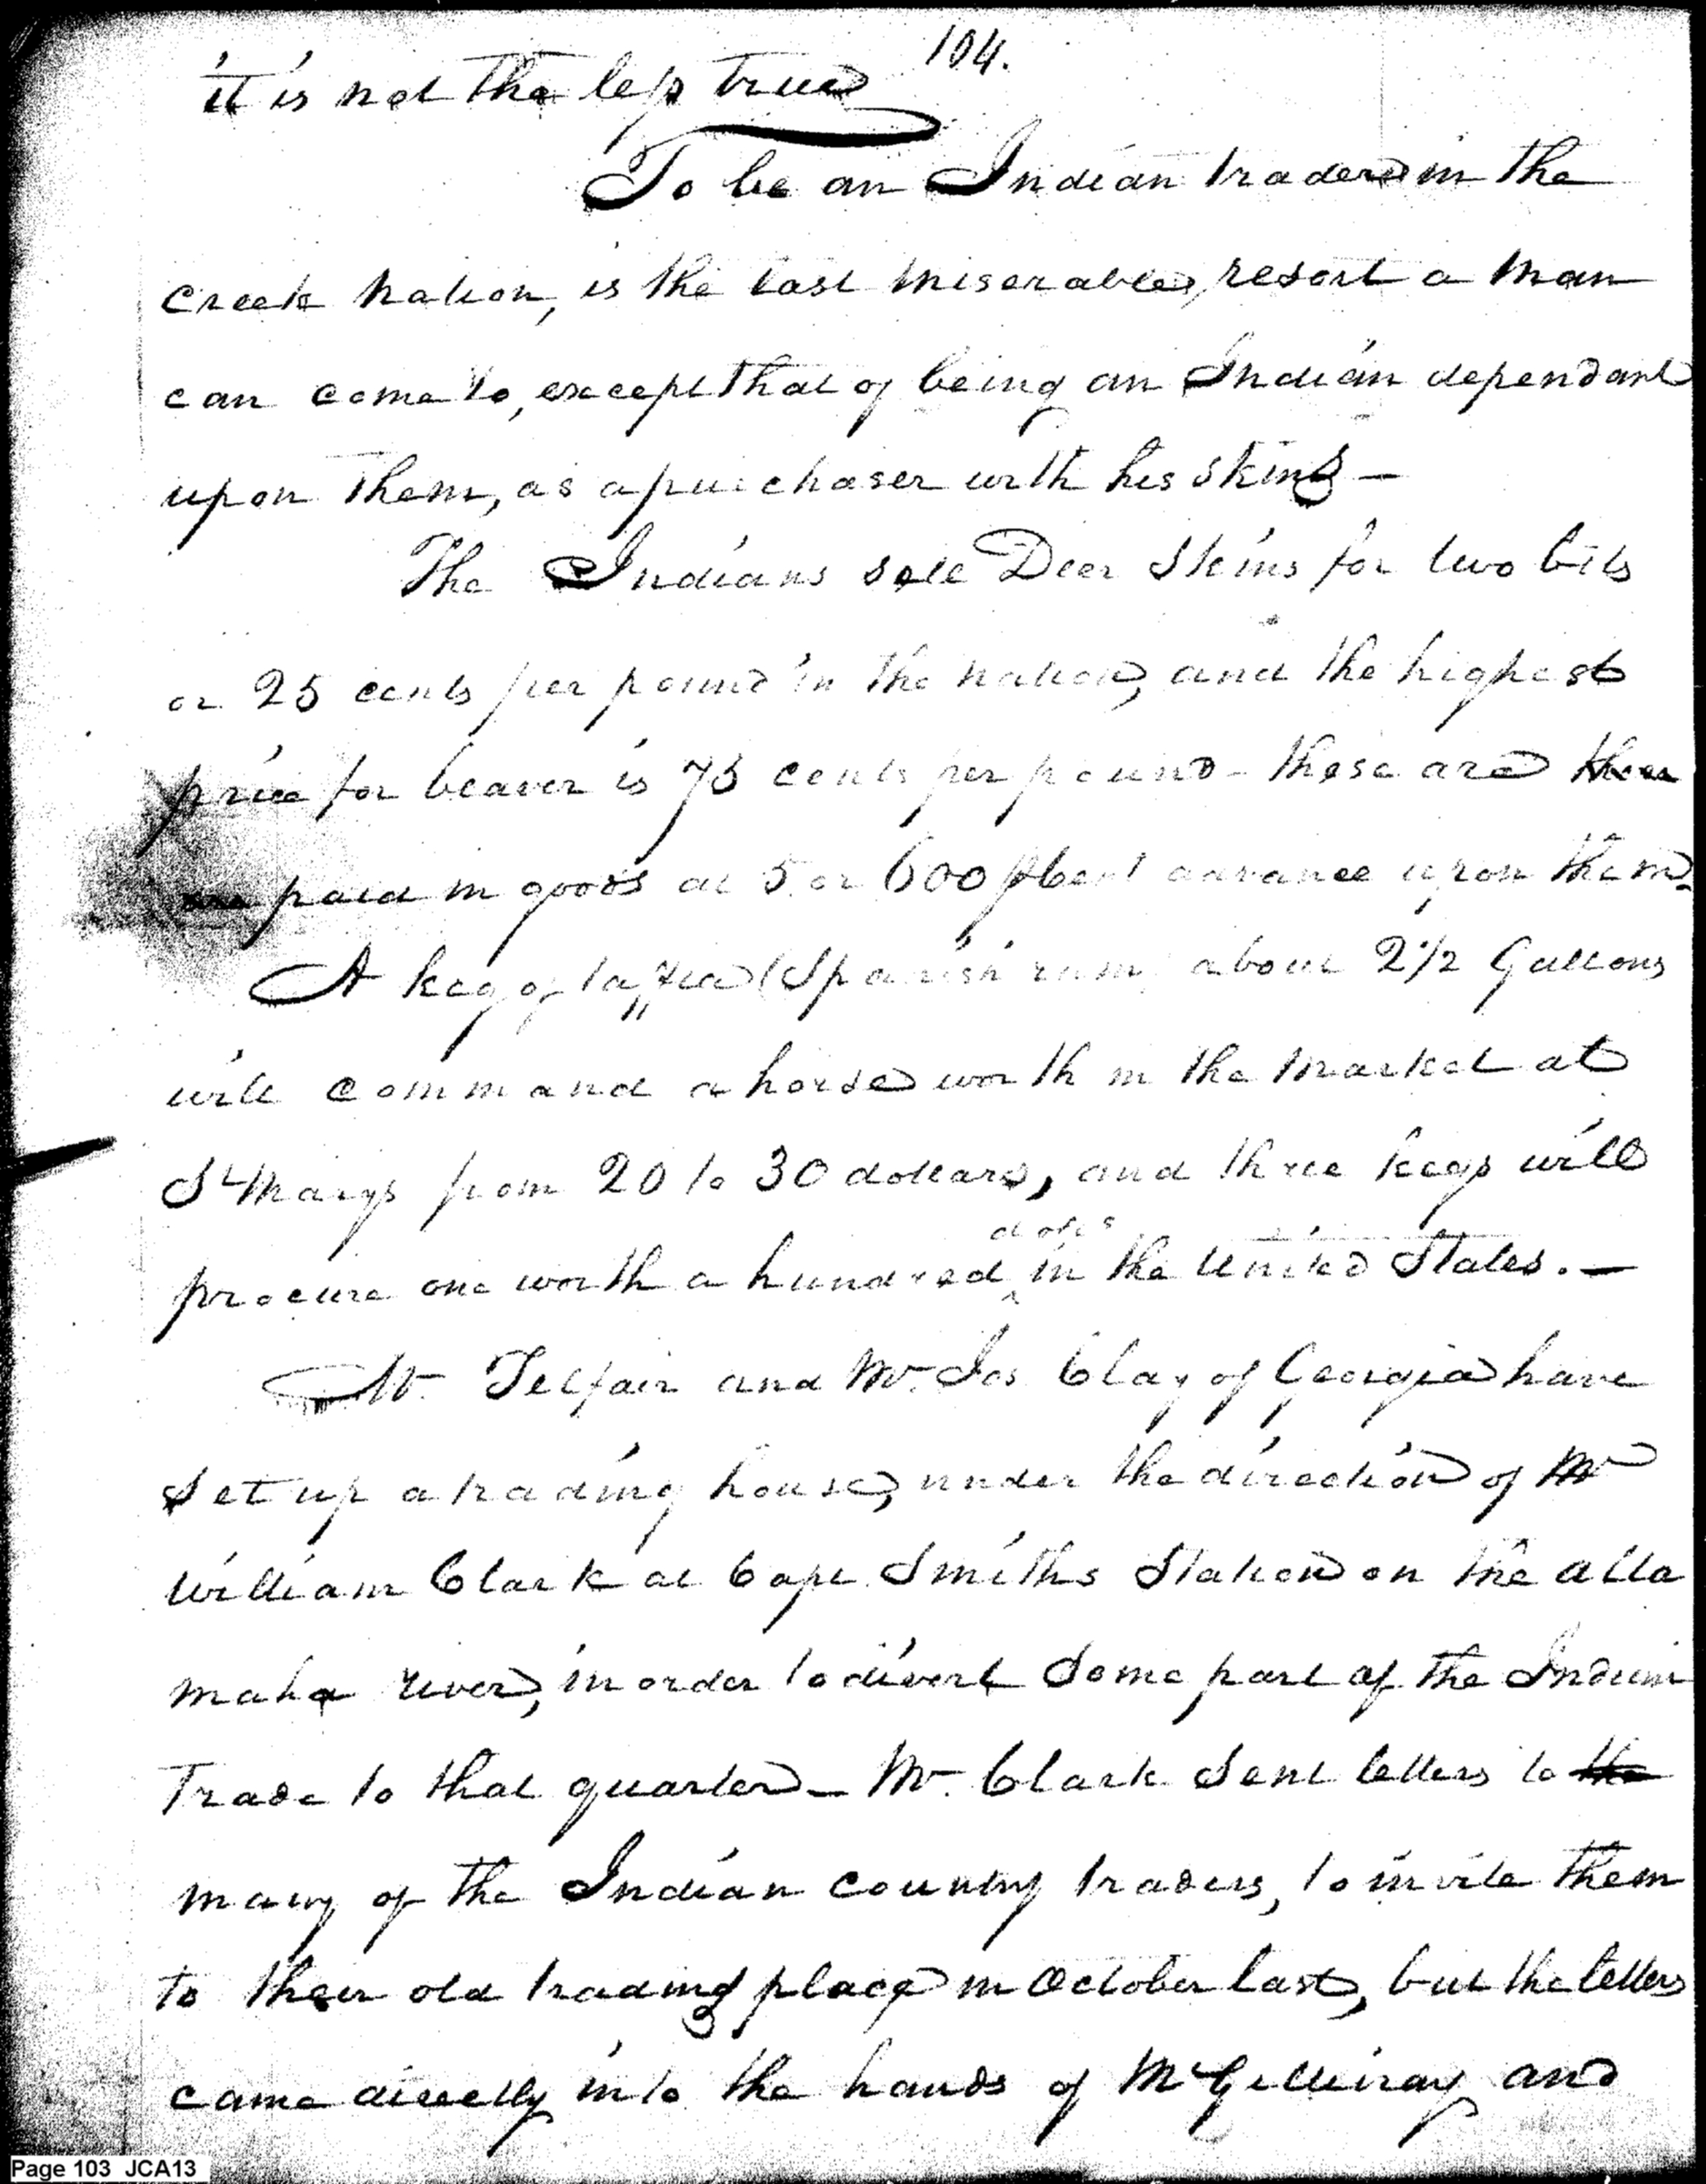 104.
it is not the less true
To be an Indian trader in the
creek nation, is the last miserable, resort a man
can come to, except that of being an Indian dependant
upon them, as a purchaser with his skins —
The Indians sell Deer Skins for two bits
or 25 cents per pound in the nation, and the highest
price for beaver is 75 cents per pound - these are then
paid in goods at 5 or 600 p Cent advance upon them.
A keg of taffia (Spanish rum) about 2 1/2 Gallons
will command a horse worth in the market at
St Marys from 20 to 30 dollars, and three kegs will
dolls
procure one worth a hundred ^ in the United States. —
Mr. Telfair and Mr. Jos Clay of Georgia have
Set up a trading house, under the direction of Mr
William Clark at Capt. Smiths Station on the alta
maha river, in order to divert Some part of the Indian
Trade to that quarter — Mr. Clark Sent letters to the
many of the Indian country traders, to invite them
to their old trading place in October last, but the letters
came directly into the hands of McGillivray and
Page 103 JCA13